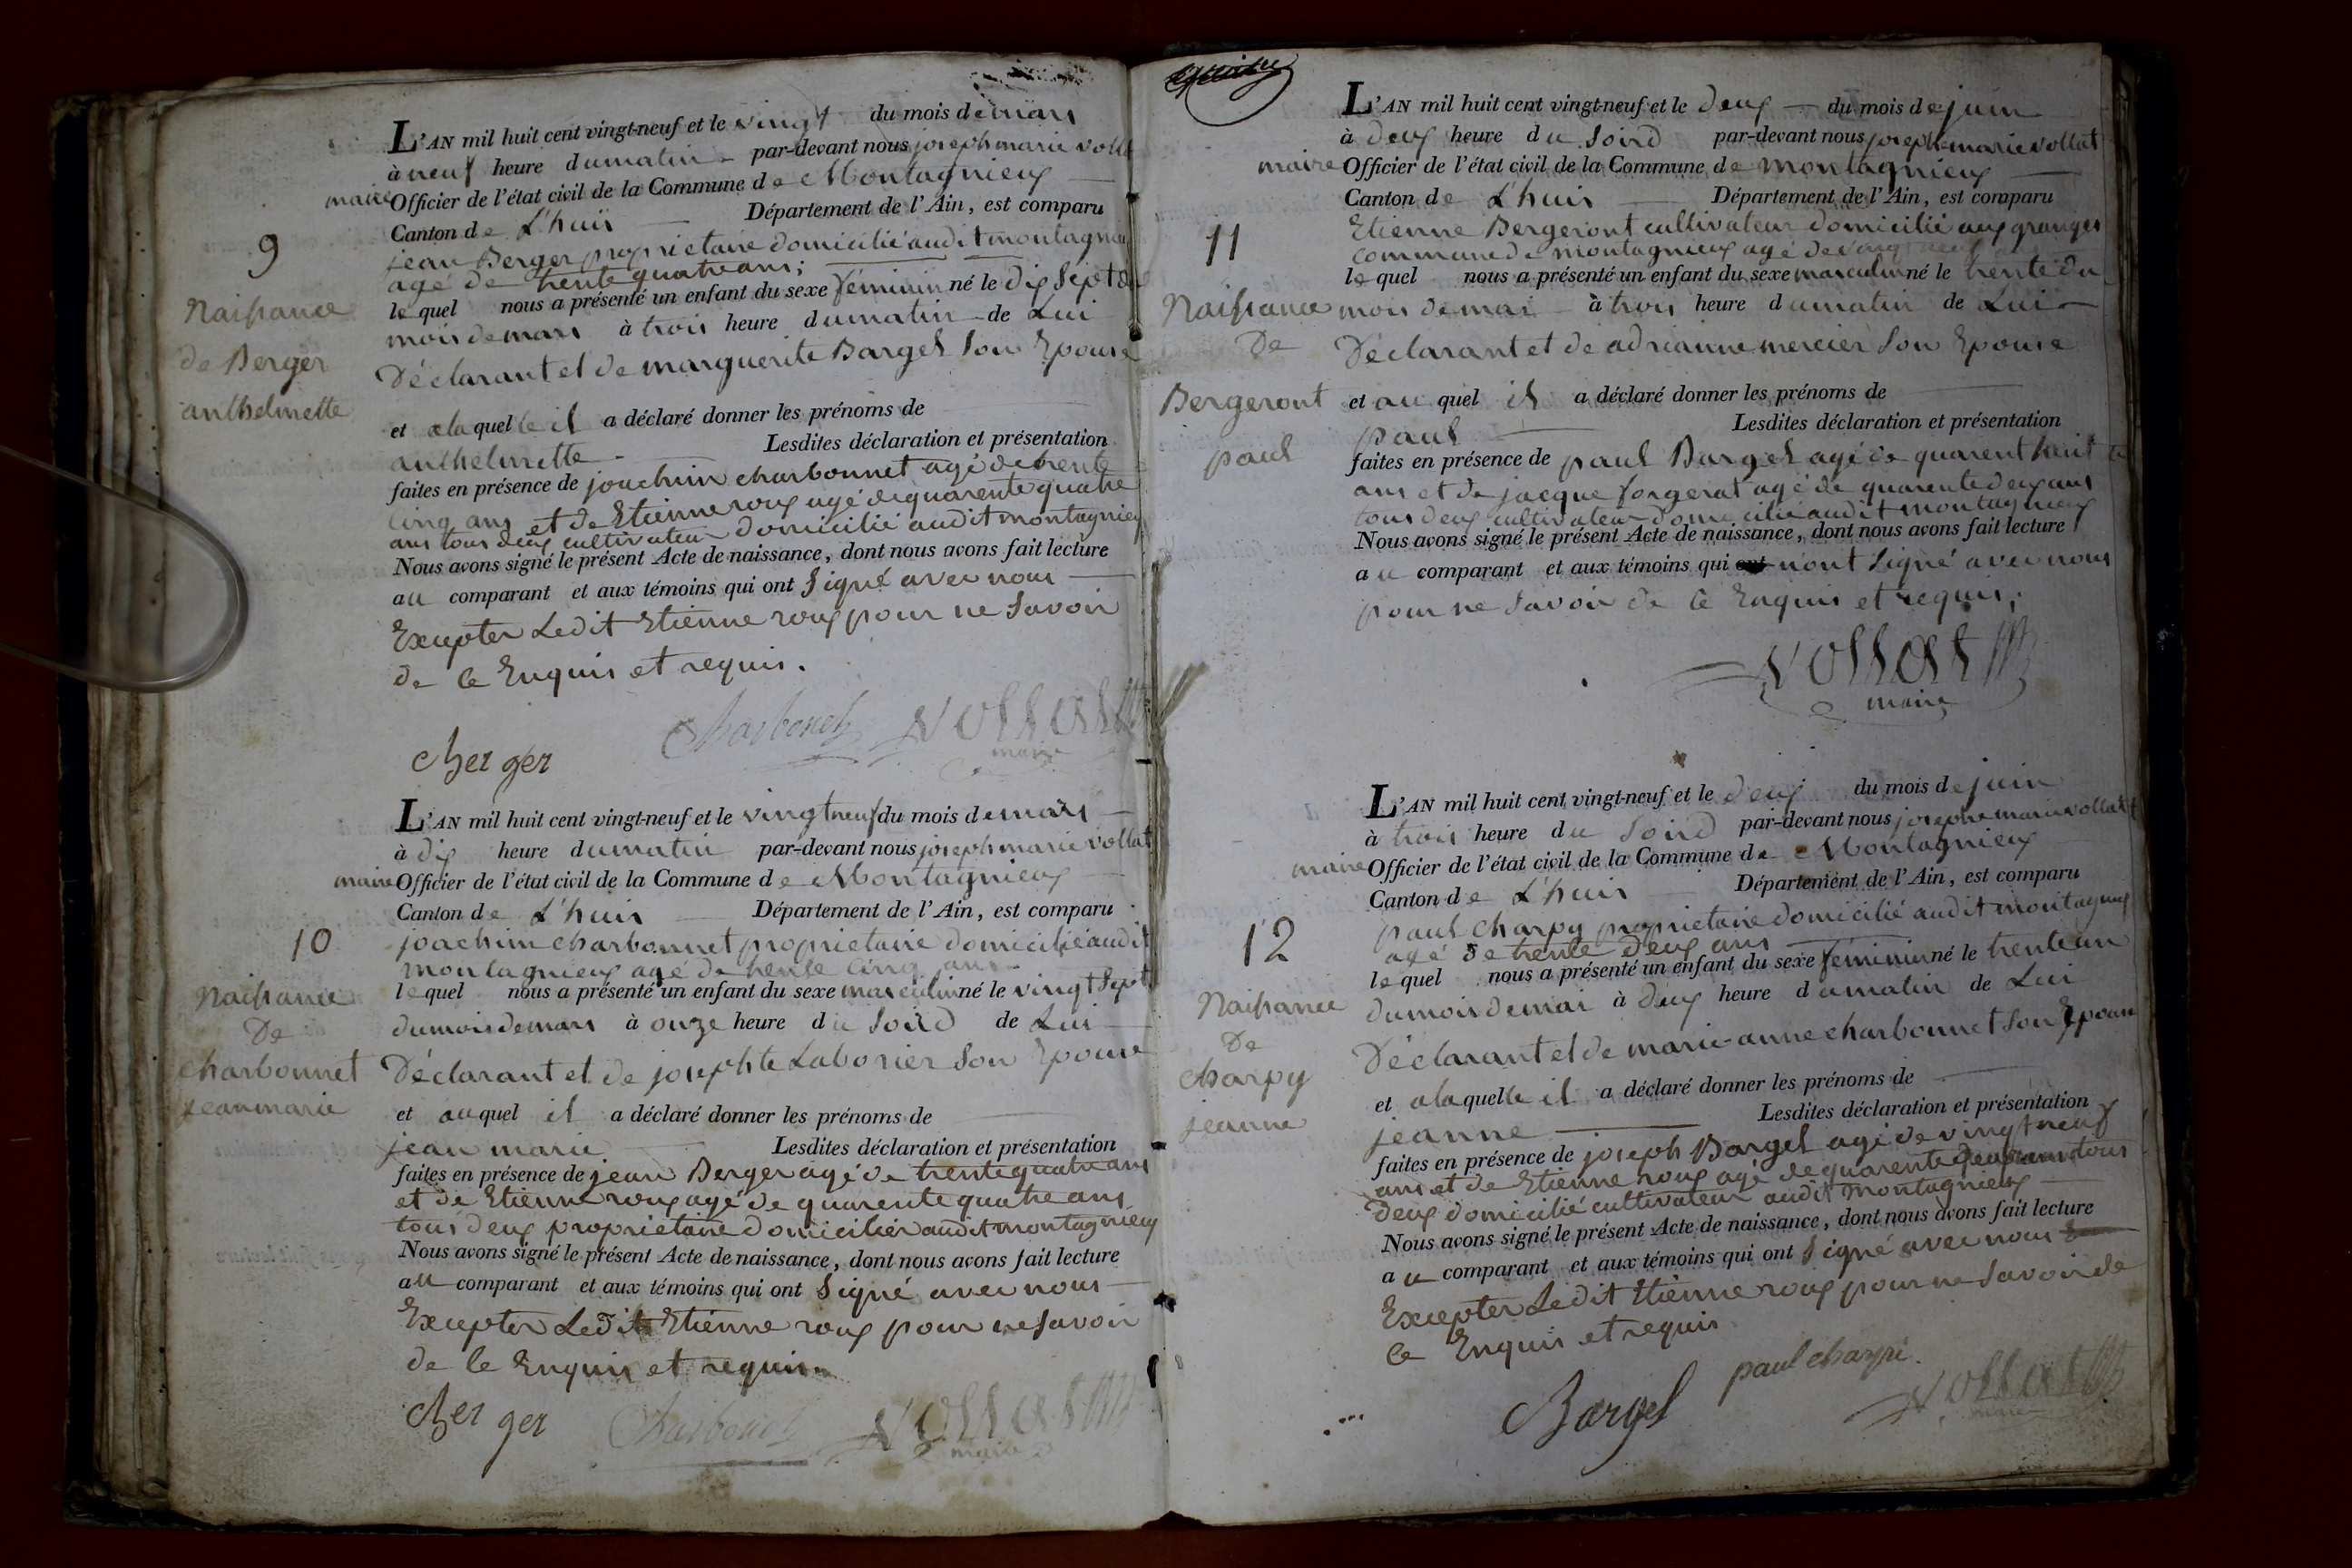 L'AN mil huit cent vingt-neuf et le vingt du mois de mars
à neuf heure du matin par-devant nous joseph marie vollat
maire Officier de l'état civil de la Commune de Montagnieux
Canton de L'huis Département de l'Ain, est comparu
9
jean Berger proprietaire domicilié audit montagnieux
agé de trente quatre ans;
le quel nous a présenté un enfant du sexe féminin né le dix sept du
Naissance
mois de mars à trois heure du matin de Lui
de Berger
Déclarant et de marguerite Bargel son Epouse
anthelmette
et a la quelle il a déclaré donner les prénoms de
anthelmette Lesdites déclaration et présentation
faites en présence de joachim charbonnet agé de trente
cinq ans et de Etienne roux agé de quarente quatre
ans tous deux cultivateur domicilié audit montagnieux
Nous avons signé le présent Acte de naissance, dont nous avons fait lecture
au comparant et aux témoins qui ont signé avec nous
Excepter Ledit Etienne roux pour ne savoir
de ce Enquis et requis.
Charbonet vollat
maire
Berger
L'AN mil huit cent vingt-neuf et le vingt neuf du mois de mars
à dix heure du matin par-devant nous joseph marie vollat
maire Officier de l'état civil de la Commune de Montagnieux
Canton de L'huis Département de l'Ain, est comparu
10
joachim charbonnet proprietaire domicilié audit
montagnieux agé de trente cinq ans
le quel nous a présenté un enfant du sexe masculin né le vingt sept
Naissance
du mois de mars à onze heure du soird de Lui
De
charbonnet
Déclarant et de josephte Laborier son Epouse
jean marie
et au quel il a déclaré donner les prénoms de
jean marie Lesdites déclaration et présentation
faites en présence de jean Berger agé de trente quatre ans
et de Etienne roux agé de quarente quatre ans
tous deux proprietaire domicilier audit montagnieux
Nous avons signé le présent Acte de naissance, dont nous avons fait lecture
au comparant et aux témoins qui ont signé avec nous
Excepter Ledit Etienne roux pour ne savoir
de ce Enquis et requis
Berger Charbonet vollat
maire
L'AN mil huit cent vingt-neuf et le deux du mois de juin
à deux heure du soird par-devant nous joseph marie vollat
maire Officier de l'état civil de la Commune de montagnieux
Canton de L'huis Département de l'Ain, est comparu
11
Etienne Bergeront cultivateur domicilié aux granges
commune de montagnieux agé de vingt neuf
le quel nous a présenté un enfant du sexe masculin né le trente du
Naissance
mois de mai à trois heure du matin de Lui
De
Déclarant et de adrianne mercier son Epouse
Bergeront
et au quel il a déclaré donner les prénoms de
paul
paul Lesdites déclaration et présentation
faites en présence de paul Bargel agé de quarent huit
ans et de jacque forgerat agé de quarente deux ans
tous deux cultivateur domicilié audit montagnieux
Nous avons signé le présent Acte de naissance, dont nous avons fait lecture
au comparant et aux témoins qui ont n'ont signé avec nous
pour ne savoir de ce Enquis et requis;
vollat
maire
L'AN mil huit cent vingt-neuf et le deux du mois de juin
à trois heure du soird par-devant nous joseph marie vollat
maire Officier de l'état civil de la Commune de Montagnieux
Canton de L'huis Département de l'Ain, est comparu
12
paul charpy proprietaire domicilié audit montagnieux
agé de trente deux ans
le quel nous a présenté un enfant du sexe féminin né le trente un
Naissance
du mois de mai à deux heure du matin de Lui
De
charpy
Déclarant et de marie-anne charbonnet son Epouse
jeanne
et a la quelle il a déclaré donner les prénoms de
jeanne Lesdites déclaration et présentation
faites en présence de joseph Bargel agé de vingt neuf
ans et de Etienne roux agé de quarente quatre ans tous
deux domicilié cultivateur audit montagnieux
Nous avons signé le présent Acte de naissance, dont nous avons fait lecture
au comparant et aux témoins qui ont signé avec nous
Excepter Ledit Etienne roux pour ne savoir de
ce Enquis et requis
Bargel paul charpi vollat
maire